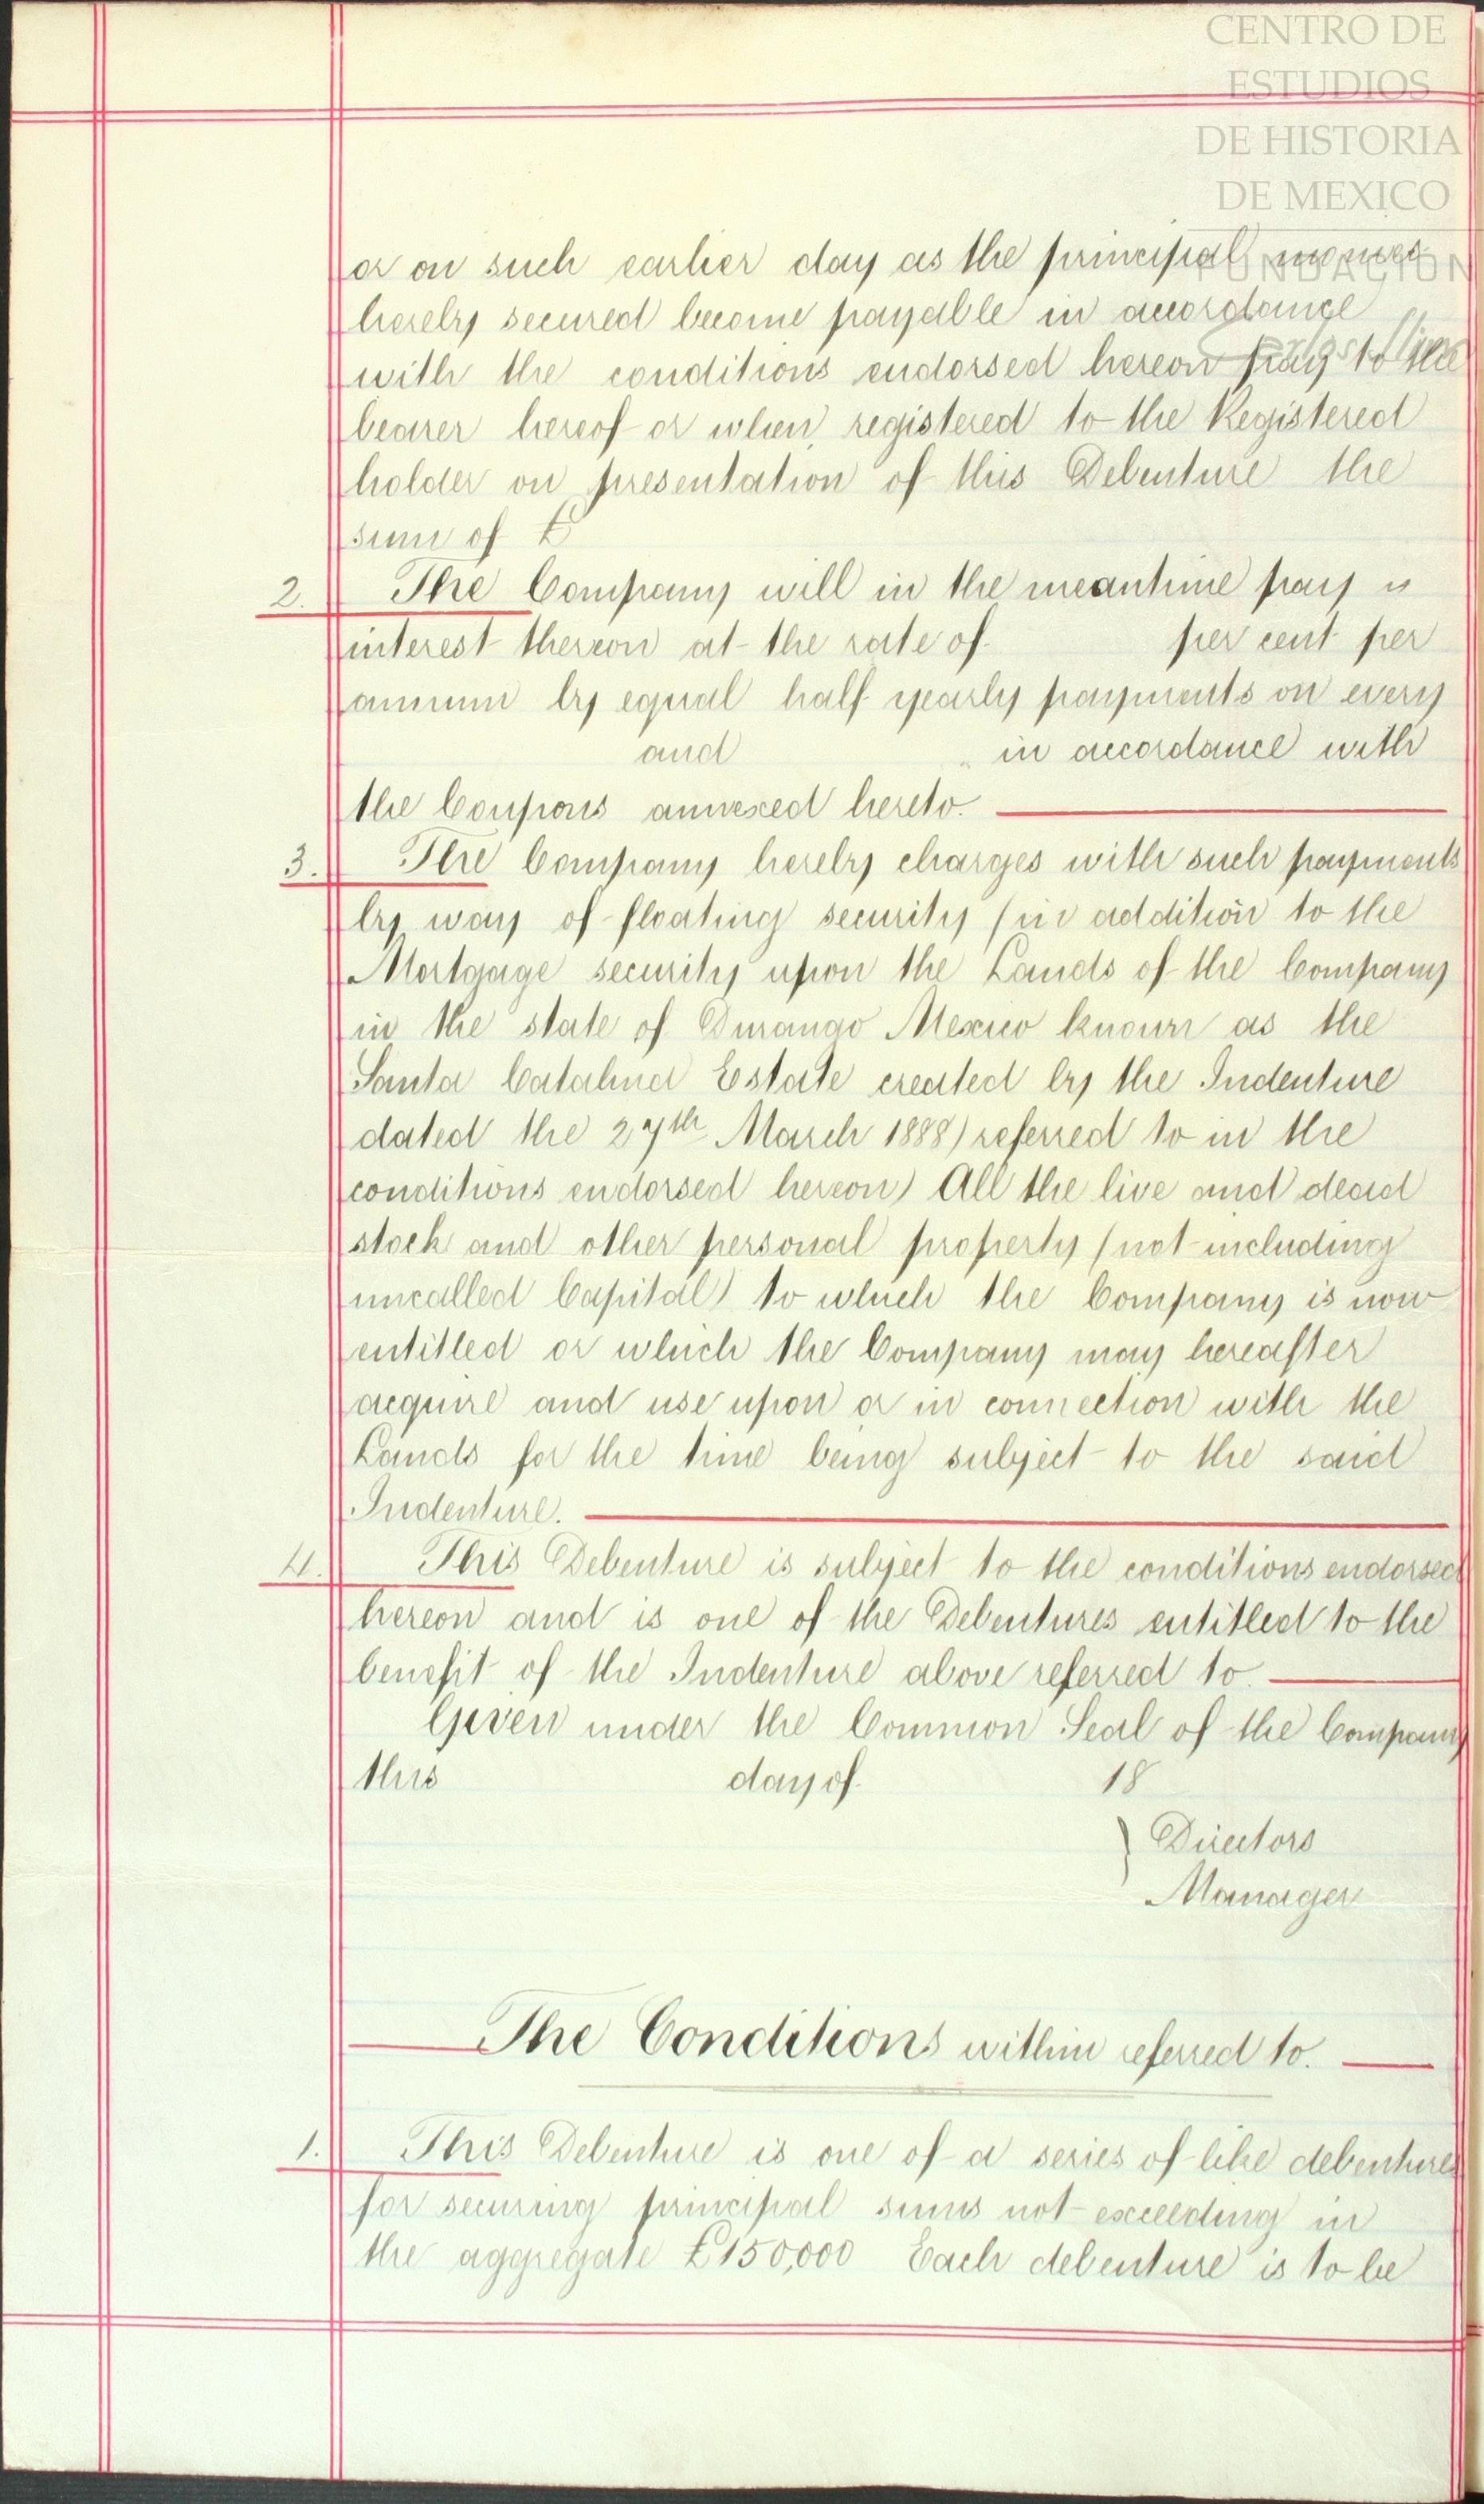 CENTRO DE
ESTUDIOS
DE HISTORIA
DE MEXICO
FUNDACION
or on such earlier day as the principal monies
hereby secured become payable in accordance
with the conditions endorsed hereon pay to the
bearer hereof or when registered to the Registered
holder on presentation of this Debenture the
sum of £
2. The Company will in the meantime pay
interest thereon at the rate of per cent per
annum by equal half yearly payments on every
and in accordance with
the Coupons annexed hereto.
3. The Company hereby charges with such payments
by way of floating security (in addition to the
Mortgage security upon the Lands of the Company
in the state of Durango Mexico known as the
Santa Catalina Estate created by the Indenture
dated the 27th March 1888) referred to in the
conditions endorsed hereon) All the live and dead
stock and other personal property (not including
uncalled Capital) to which the Company is now
entitled or which the Company may hereafter
acquire and use upon or in connection with the
Lands for the time being subject to the said
Indenture.
4. This Debenture is subject to the conditions endorsed
hereon and is one of the Debentures entitled to the
benefit of the Indenture above referred to.
Given under the Common Seal of the Company
this day of 18
} Directors
Manager
The Conditions within referred to.
1. This Debenture is one of a series of like debentures
for securing principal sums not exceeding in
the aggregate £150,000 Each debenture is to be